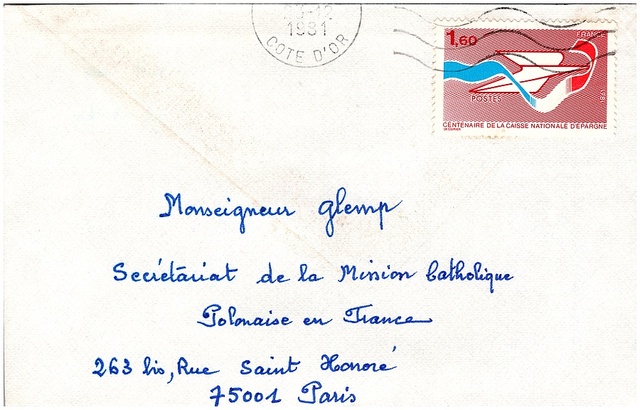 1981
COTE D'OR
1,60
FRANCE
POSTES
1981
CENTENAIRE DE LA CAISSE NATIONALE D'EPARGNE
Monseigneur Glemp
Secrétariat de la Mission Catholique
Polonaise en France
263 bis, Rue Saint Honoré
75001 Paris